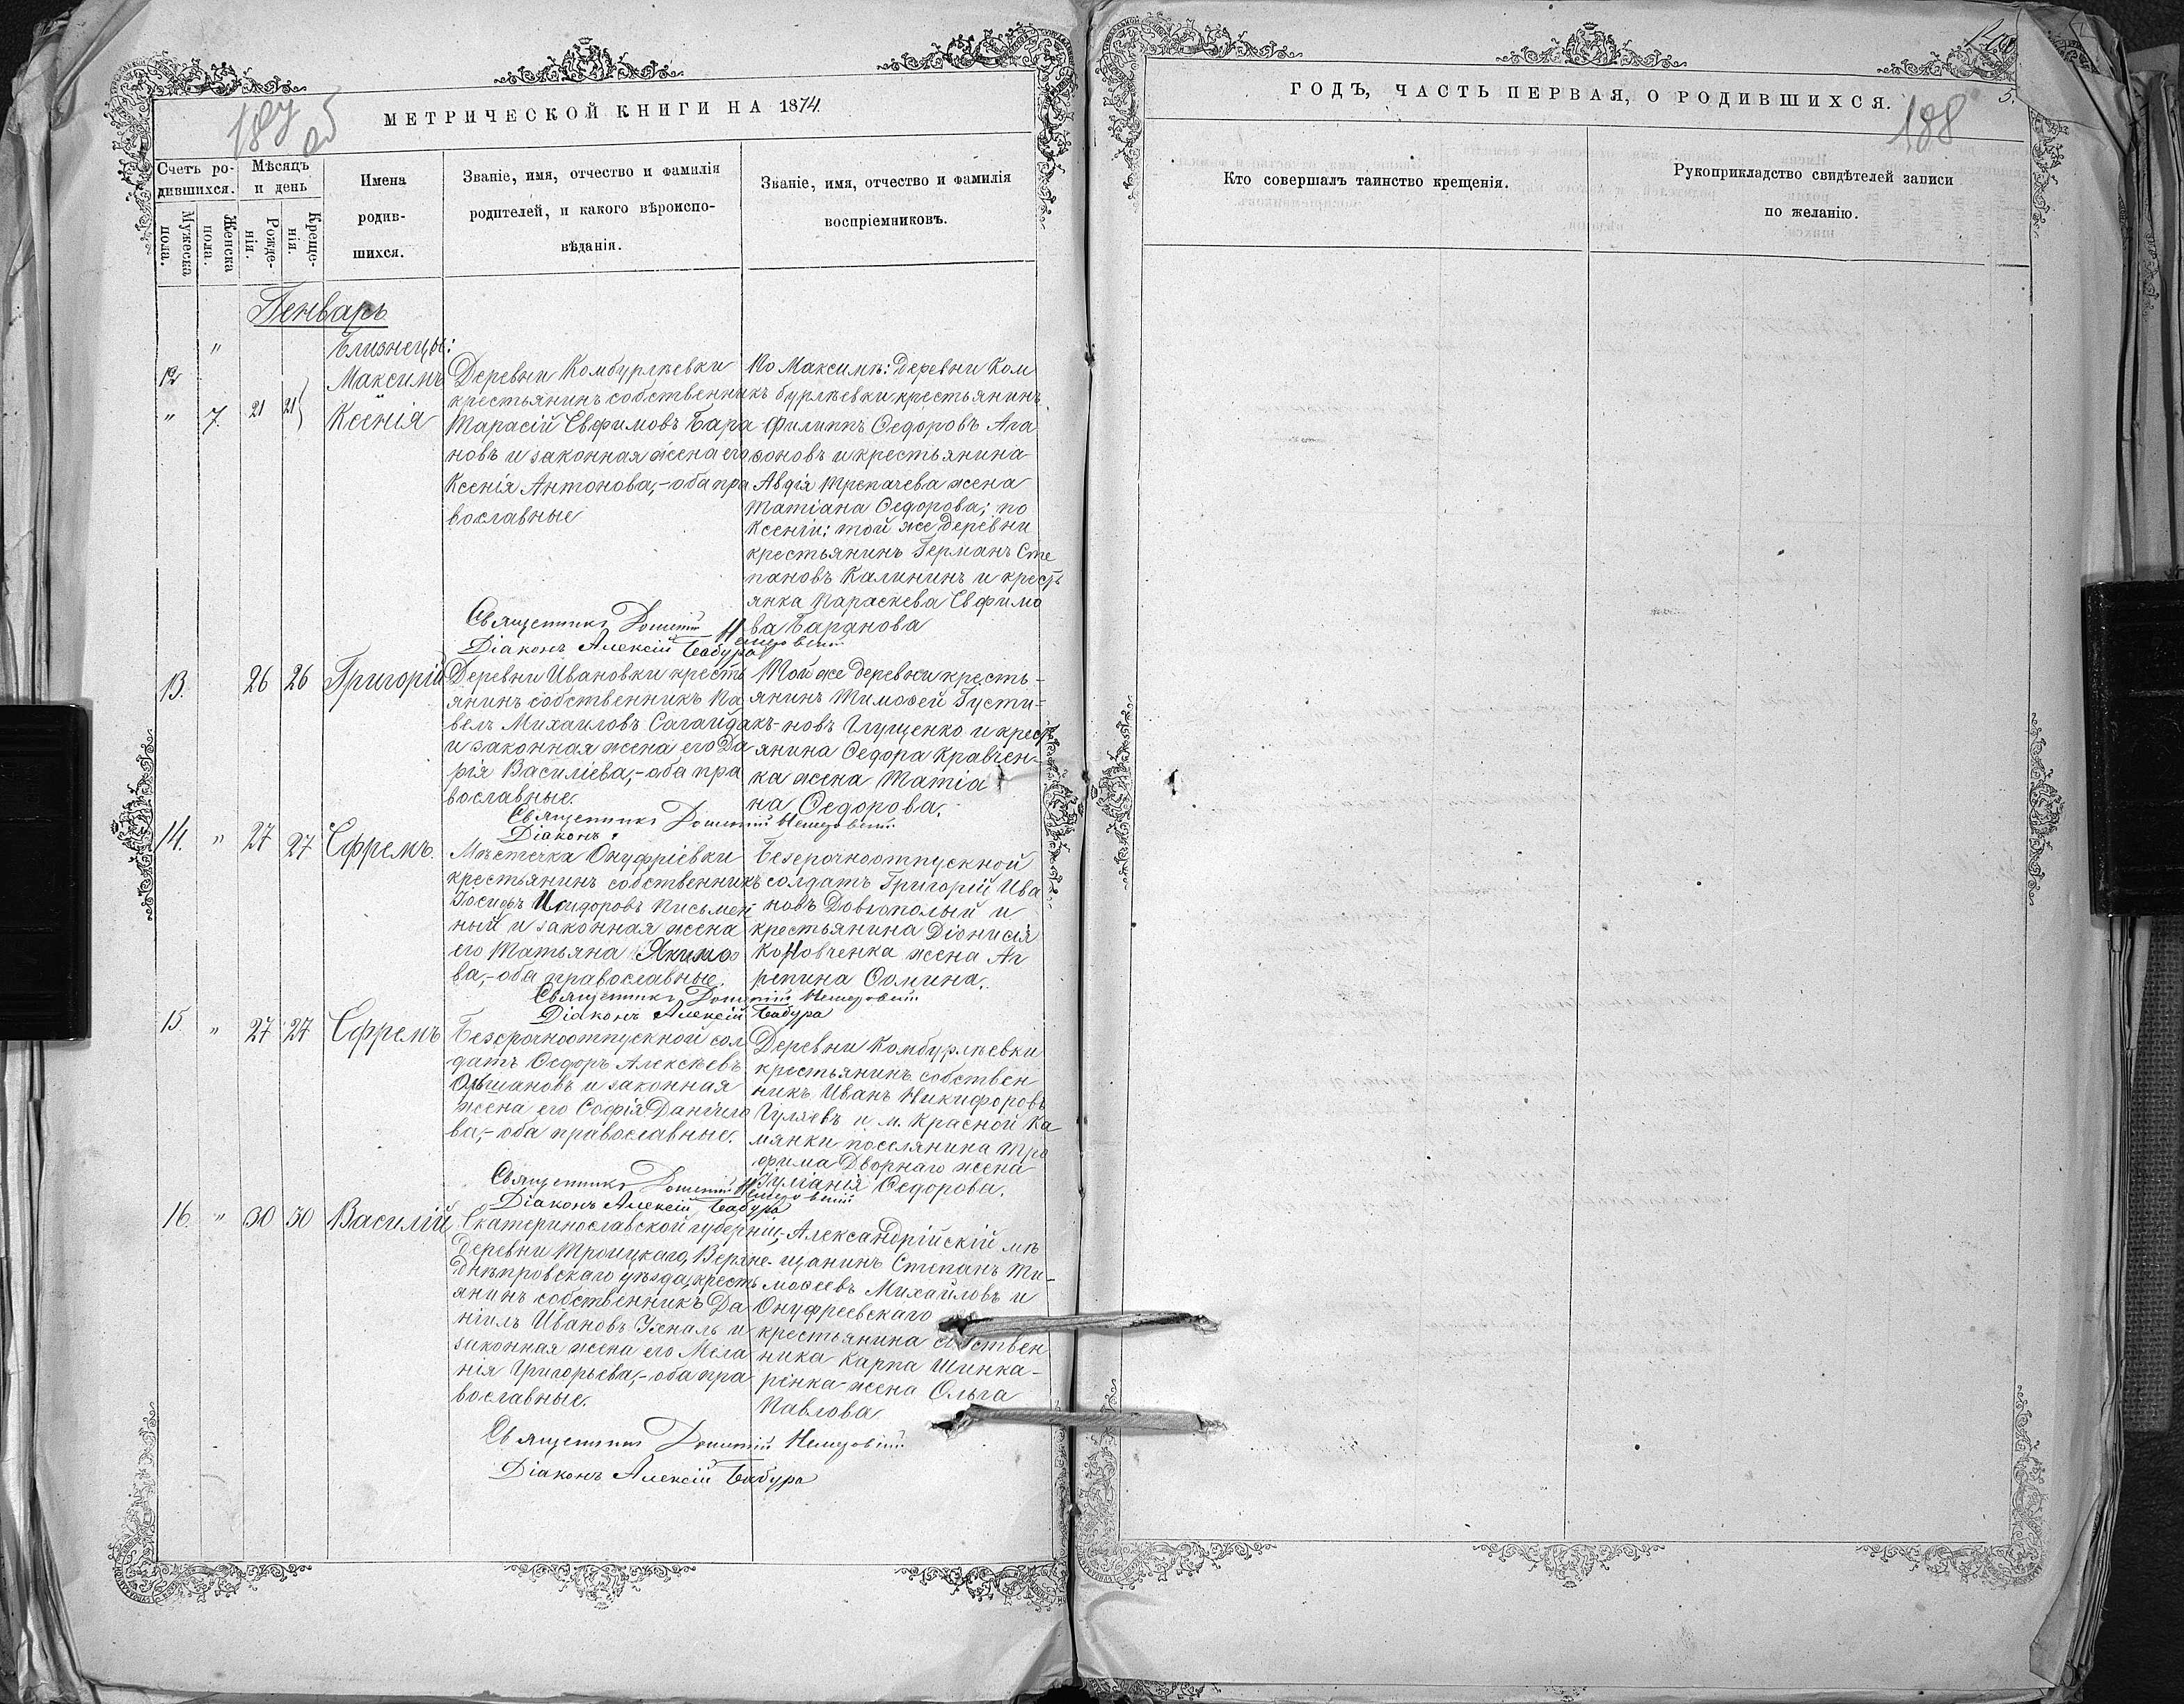 187 об
МЕТРИЧЕСКОЙ КНИГИ НА 1874.
Счетъ ро-
дившихся.
Мужеска
пола.
Женска
пола.
Мѣсяцъ
и день
Рожде-
нія.
Креще-
нія.
Имена
родив-
шихся.
Званіе, имя, отчество и фамилія
родителей, и какого вѣроиспо-
вѣданія.
Званіе, имя, отчество и фамилія
воспріемниковъ.
Генварь
"
Близнецы:
12
Максимъ
" 7. 21 21
Ксенія
Деревни Комбурлѣевки
крестьянинъ собственникъ
Тарасій Евфимовъ Бара
новъ и законная жена его
Ксенія Антонова,- оба пра
вославные
По Максимѣ: деревни Ком
бурлѣевки крестьянинъ
Филиппъ Ѳедоровъ Ага
ѳоновъ и крестьянина
Авдія Трепачева жена
Татіана Ѳедорова; по
Ксеніи: той же деревни
крестьянинъ Германъ Сте
пановъ Калининъ и кресть
янка Параскева Евфимо
ва Баранова
Священникъ
Діаконъ Алексій Бабура
13. 26 26 Григорій
Деревни Ивановки кресть
янинъ собственникъ Па
велъ Михаиловъ Сагайдакъ
и законная жена его Да
рія Василіева,- оба пра
вославные.
Той же деревни кресть-
янинъ Тимоѳей Густи-
новъ Глущенко и крест
янина Ѳедора Кравчен-
ка жена Татіа
на Ѳедорова.
Священникъ
Діаконъ
14. " 27 27 Ефремъ.
Мѣстечка Онуфріевки
крестьянинъ собственникъ
Іосифъ Исидоровъ Письмен
ный и законная жена
его Татьяна Якимо
ва,- оба православные.
Безсрочноотпускной
солдатъ Григорій Ива
новъ Довгополый и
крестьянина Діонисія
Коновченка жена Аг
репина Ѳомина.
Священникъ
Діаконъ Алексій Бабура
15. " 27 27 Ефремъ
Безсрочноотпускной сол
датъ Ѳедоръ Алексѣевъ
Ольшановъ и законная
жена его Софія Данiило
ва,- оба православные.
Деревни Комбурлѣевки
крестьянинъ собствен
никъ Иванъ Никифоровъ
Гуляевъ и м. Красной Ка
мянки поселянина Тро
фима Дворнаго жена
Іуліанія Ѳедорова.
Священникъ
Діаконъ Алексій Бабура
16. " 30 30 Василій
Екатеринославской губерніи,
деревни Троицкаго, Верхне-
днѣпровскаго уѣзда, кресть
янинъ собственникъ Да
ніилъ Ивановъ Ухналь и
законная жена его Мела
нія Григорьева,- оба пра
вославные.
Александрійскій мѣ
щанинъ Степанъ Ти-
моѳеевъ Михайловъ и
Онуфреевскаго
крестьянина собствен
ника Карпа Шинка-
рѣнка жена Ольга
Павлова
Священникъ
Діаконъ Алексій Бабура
ГОДЪ, ЧАСТЬ ПЕРВАЯ, О РОДИВШИХСЯ.
5.
188
Кто совершалъ таинство крещенія.
Рукоприкладство свидѣтелей записи
по желанію.